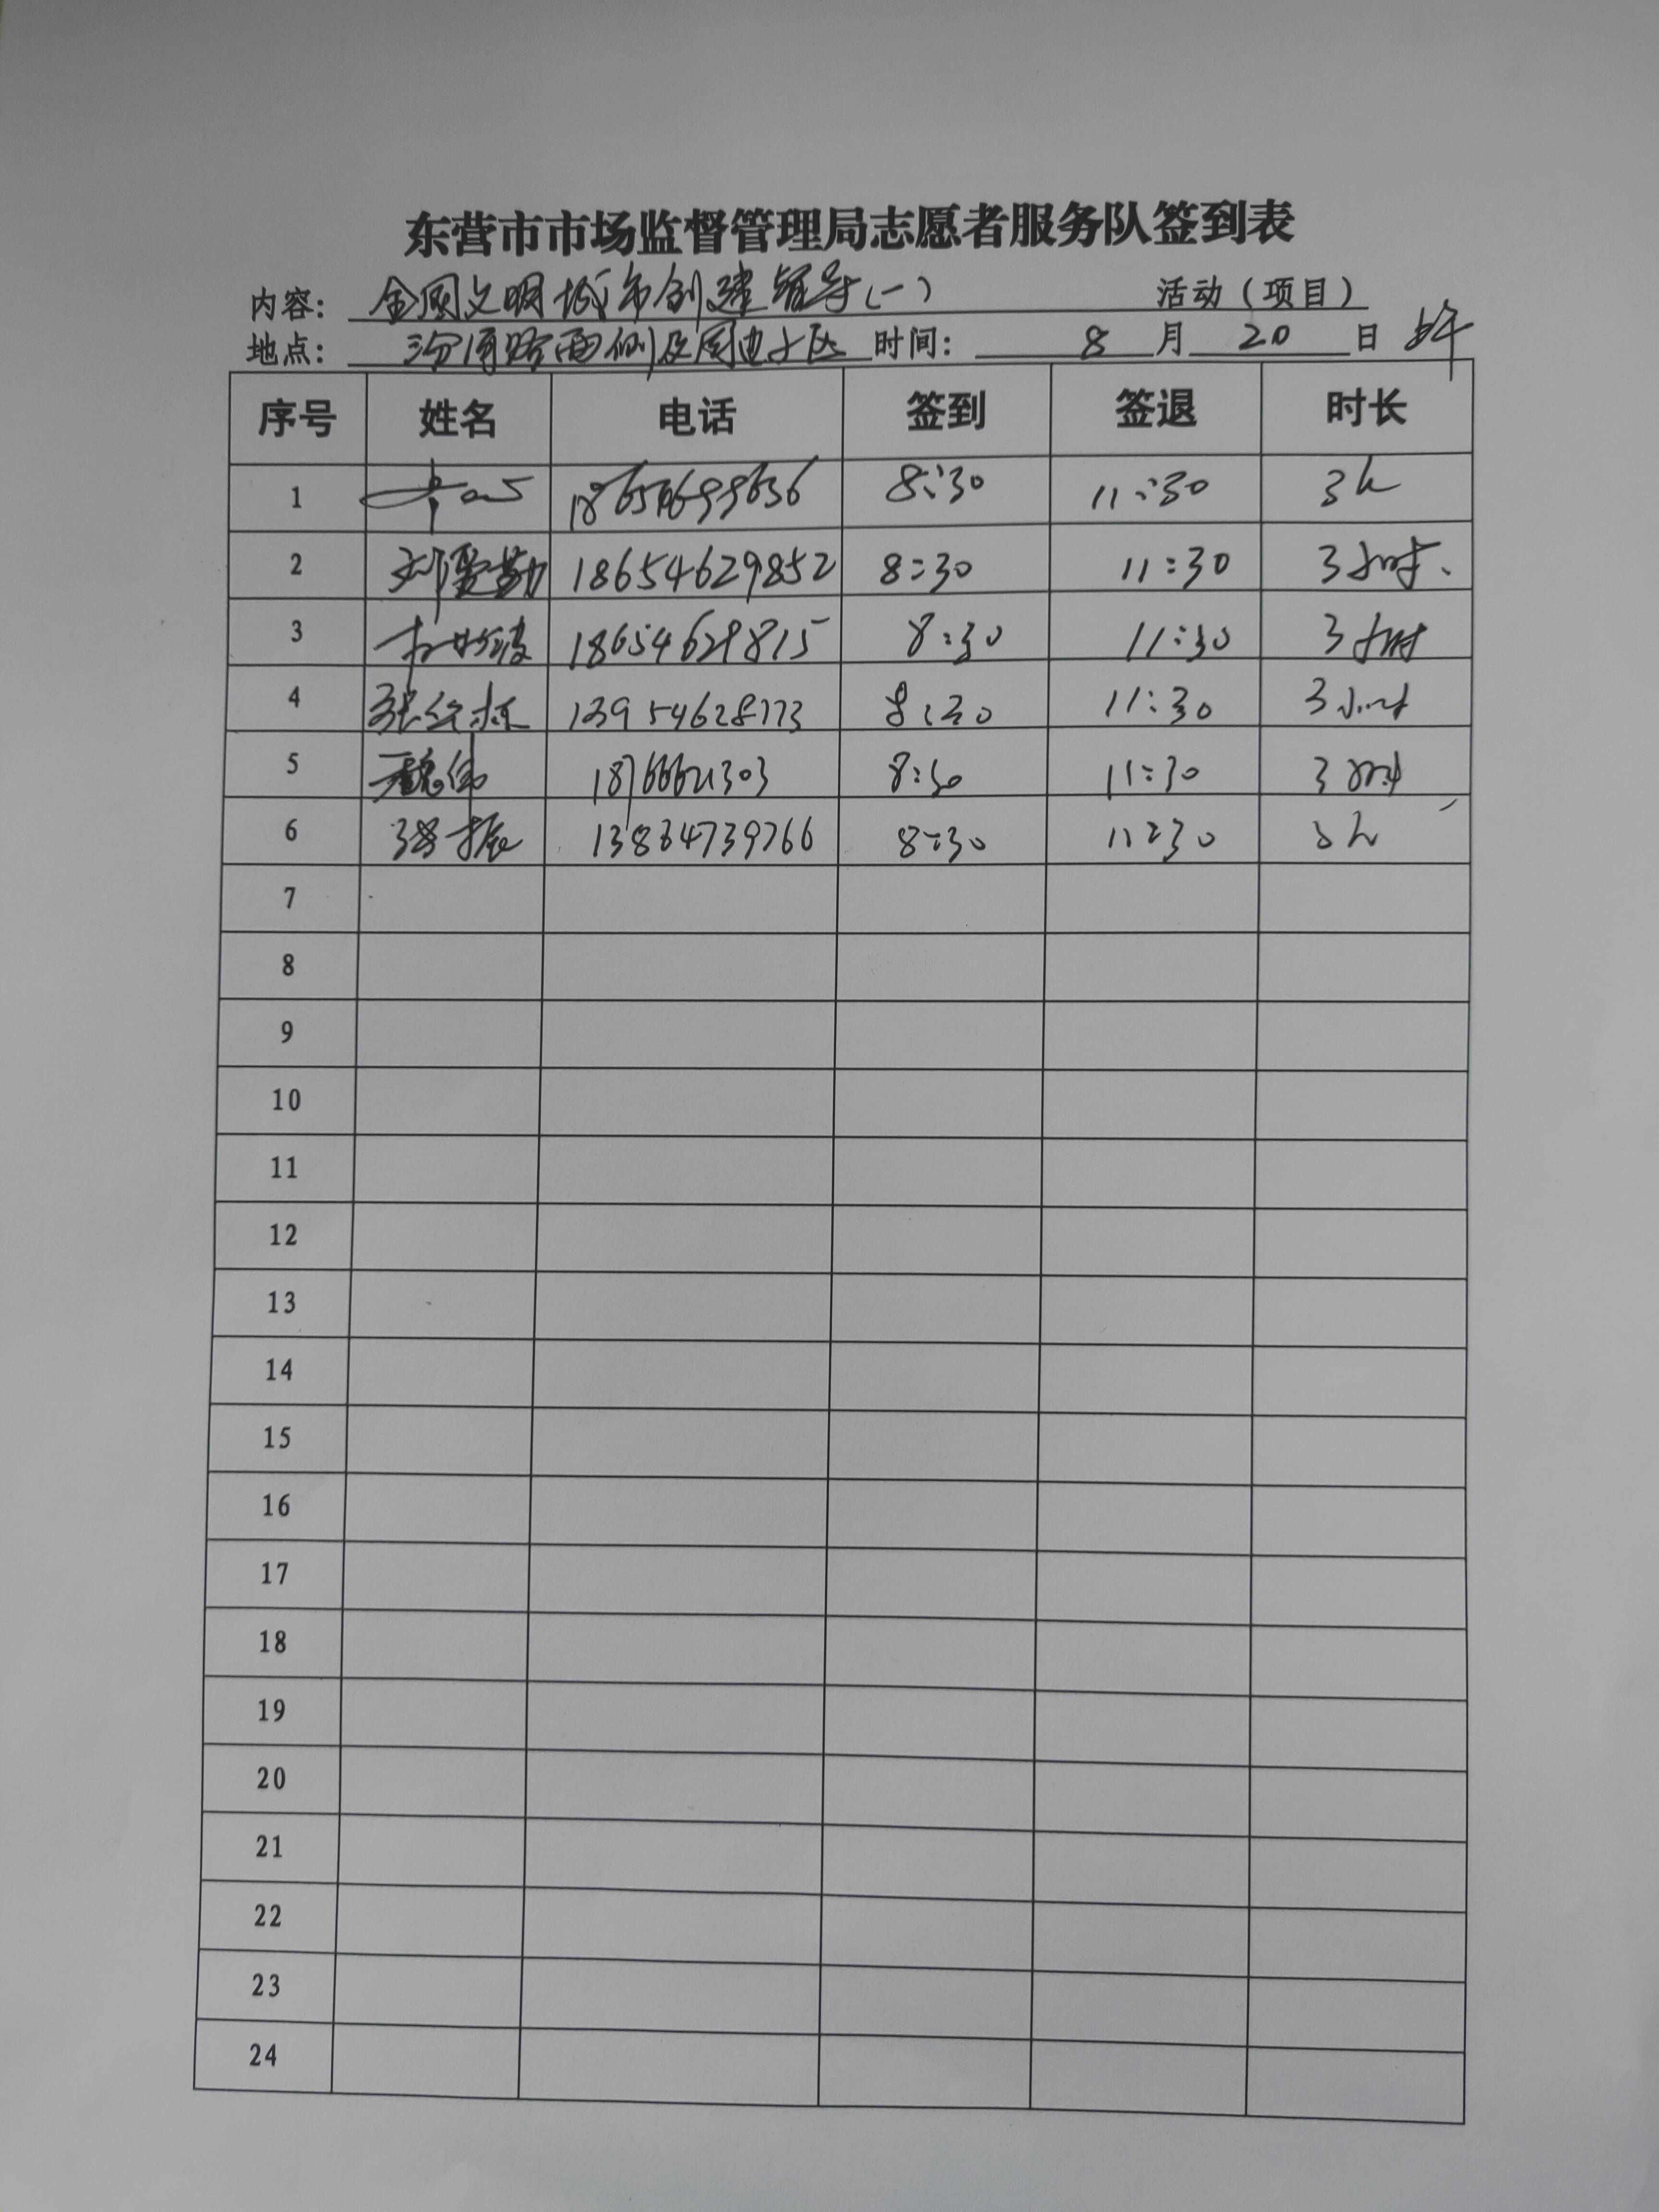 东营市市场监督管理局志愿者服务队签到表
内容： 全国文明城市创建督导(一) 活动（项目）
地点： 汾河路两侧及周边小区 时间： 8 月 20 日 上午
序号 姓名 电话 签到 签退 时长
1 8:30 11:30 3h
2 18654629852 8:30 11:30 3小时.
3 18654629815 8:30 11:30 3小时
4 13954628773 8:30 11:30 3小时
5 魏伟 8:30 11:30 3小时
6 张振 13864739766 8:30 11:30 3h
7
8
9
10
11
12
13
14
15
16
17
18
19
20
21
22
23
24